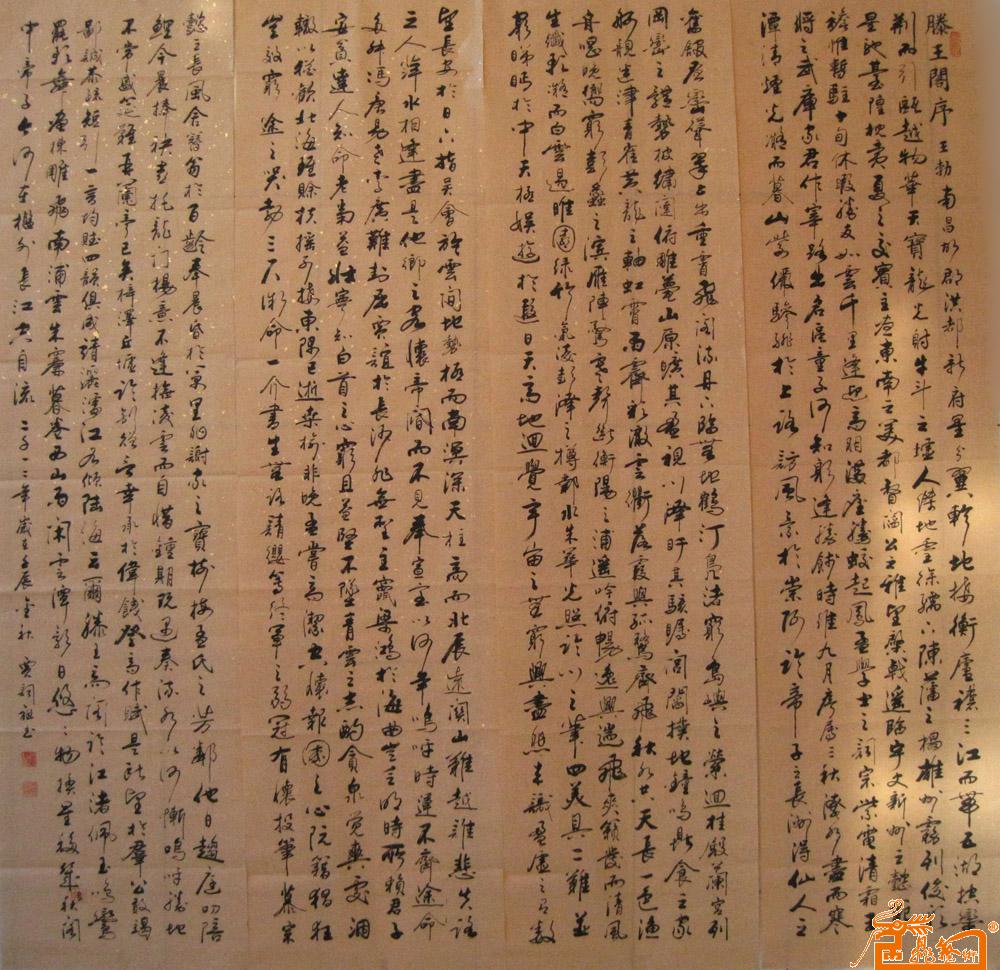 滕王閣序 王勃 南昌故郡洪都新府星分翼軫地接衡廬襟三江而帶五湖控蠻
荊而引甌越物華天寶龍光射牛斗之墟人傑地靈徐孺下陳蕃之榻雄州霧列俊彩
星馳臺隍枕夷夏之交賓主盡東南之美都督閻公之雅望棨戟遙臨宇文新州之懿範
襜帷暫駐十旬休暇勝友如雲千里逢迎高朋滿座騰蛟起鳳孟學士之詞宗紫電清霜王
將之武庫家君作宰路出名區童子何知躬逢勝餞時維九月序屬三秋潦水盡而寒
潭清煙光凝而暮山紫儼驂騑於上路訪風景於崇阿臨帝子之長洲得仙人之
舊館層巒聳翠上出重霄飛閣流丹下臨無地鶴汀鳧渚窮島嶼之縈迴桂殿蘭宮列
岡巒之體勢披繡闥俯雕甍山原曠其盈視川澤盱其駭矚閭閻撲地鐘鳴鼎食之家
舸艦迷津青雀黃龍之軸虹霄雨霽彩徹雲衢落霞與孤鶩齊飛秋水共天長一色漁
舟唱晚響窮彭蠡之濱雁陣驚寒聲斷衡陽之浦遙吟俯暢逸興遄飛爽籟發而清風
生纖歌凝而白雲遏睢園綠竹氣凌彭澤之樽鄴水朱華光照臨川之筆四美具二難並
窮睇眄於中天極娛遊於暇日天高地迥覺宇宙之無窮興盡悲來識盈虛之有數
望長安於日下指吳會於雲間地勢極而南溟深天柱高而北辰遠關山難越誰悲失路
之人萍水相逢盡是他鄉之客懷帝閽而不見奉宣室以何年嗚呼時運不齊途命
多舛馮唐易老李廣難封屈賈誼於長沙非無聖主竄梁鴻於海曲豈乏明時所賴君子
安貧達人知命老當益壯寧知白首之心窮且益堅不墜青雲之志酌貪泉覺爽處涸
轍以猶歡北海雖賒扶搖可接東隅已逝桑榆非晚孟嘗高潔空懷報國之心阮籍猖狂
豈效窮途之哭勃三尺微命一介書生無路請纓等終軍之弱冠有懷投筆慕宗
愨之長風舍簪笏於百齡奉晨昏於萬里非謝家之寶樹接孟氏之芳鄰他日趨庭叨陪
鯉今晨捧袂喜托龍門楊意不逢撫凌雲而自惜鐘期既遇奏流水以何慚嗚呼勝地
不常盛筵難再蘭亭已矣梓澤丘墟臨別贈言幸承於偉餞登高作賦是所望於群公敢竭
鄙誠恭疏短引一言均賦四韻俱成請灑潘江各傾陸海云爾滕王高閣臨江渚佩玉鳴鸞
罷歌舞畫棟雕飛南浦雲朱簾暮卷西山雨閑雲潭影日悠々物換星移幾秋閣
中帝子今何在檻外長江空自流 二〇一二年歲在壬辰金秋 祖書